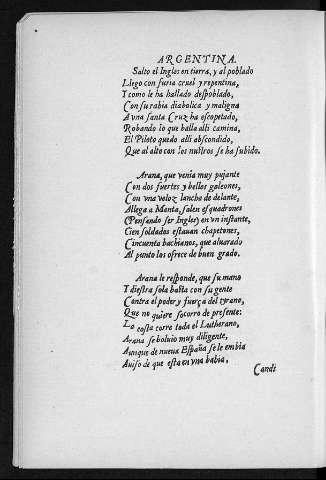 ARGENTINA.
Salto el Ingles en tierra, y al poblado
Llego con furia cruel y repentina,
Y como le ha hallado despoblado,
Con su rabia diabolica y maligna
A vna santa Cruz ha escopetado,
Robando lo que halla alli camina,
El Piloto quedo alli abscondido,
Que al alto con los nustros se ha subido.
Arana, que venia muy pujante
Con dos fuertes y bellos galeones,
Con vna veloz lancha de delante,
Allega a Manta, salen esquadrones
(Pensando ser Ingles) en vn instante,
Cien soldados estauan chapetones,
Cincuenta bachianos, que aluarado
Al punto los ofrece de buen grado.
Arana le responde, que su mano
Y diestra sola basta con su gente
Contra el poder y fuerça del tyrano,
Que no quiere socorro de presente:
La costa corre toda el Lutherano,
Arana se boluio muy diligente,
Aunque de nueua España se le embia
Auiso de que esta en vna bahia,
Candi